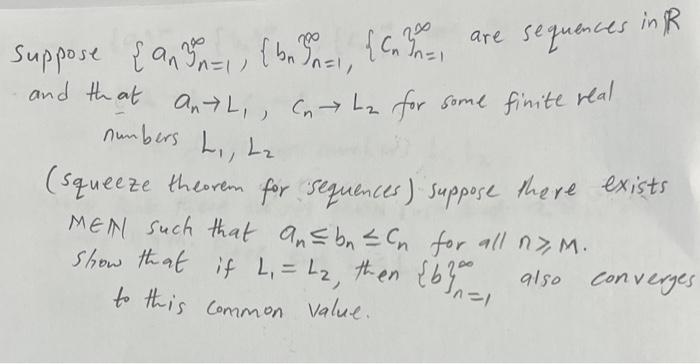 Suppose {aₙ}ₙ₌₁^∞, {bₙ}ₙ₌₁^∞, {cₙ}ₙ₌₁^∞ are sequences in ℝ
and that aₙ→L₁, cₙ→L₂ for some finite real
numbers L₁, L₂
(squeeze theorem for sequences) suppose there exists
M∈ℕ such that aₙ≤bₙ≤cₙ for all n≥M.
show that if L₁=L₂, then {b}ₙ₌₁^∞ also converges
to this common value.